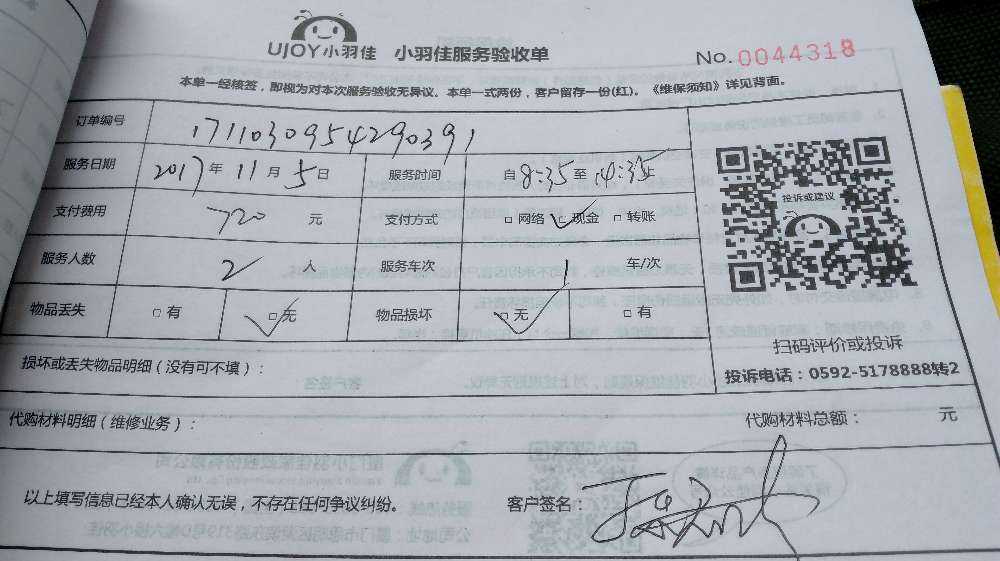 UJOY小羽佳 小羽佳服务验收单
No. 0044318
本单一经核签，即视为对本次服务验收无异议。本单一式两份，客户留存一份(红)。《维保须知》详见背面。
订单编号 1711030954290391
服务日期 2017年11月5日 服务时间 自8:35至14:35止
支付费用 720元 支付方式 □网络 □现金 □转账
服务人数 2人 服务车次 1车/次
物品丢失 □有 □无 物品损坏 □无 □有
投诉或建议
扫码评价或投诉
投诉电话：0592-5178888转2
损坏或丢失物品明细（没有可不填）：
代购材料明细（维修业务）： 代购材料总额： 元
以上填写信息已经本人确认无误，不存在任何争议纠纷。 客户签名：